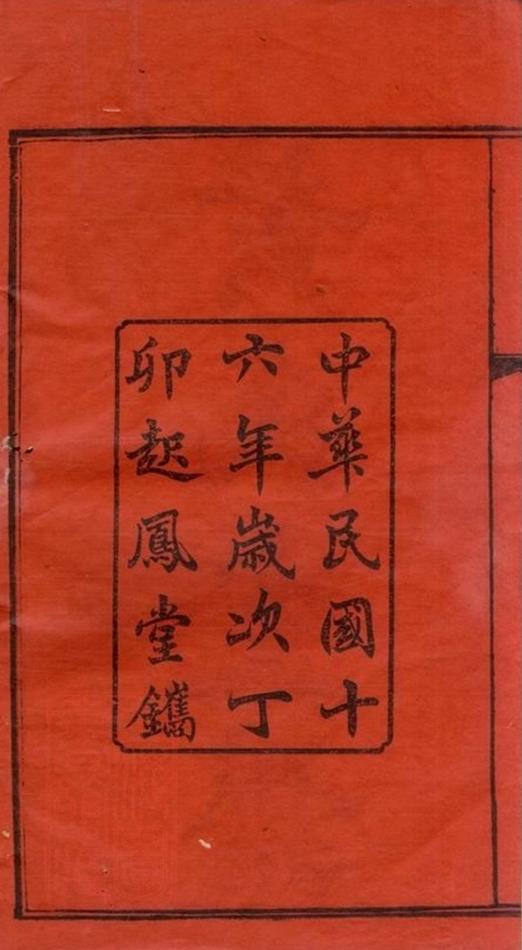 中華民國十
六年歲次丁
卯起鳳堂鐫